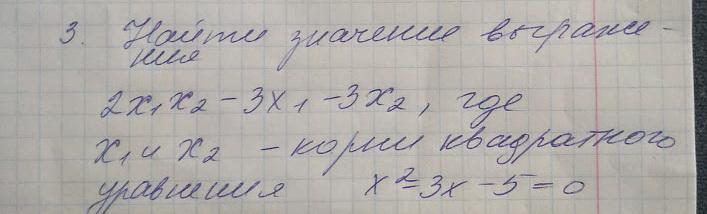 3. Найти значение выраже-
ния
2x₁x₂ - 3x₁ - 3x₂, где
x₁ и x₂ - корни квадратного
уравнения x² - 3x - 5 = 0